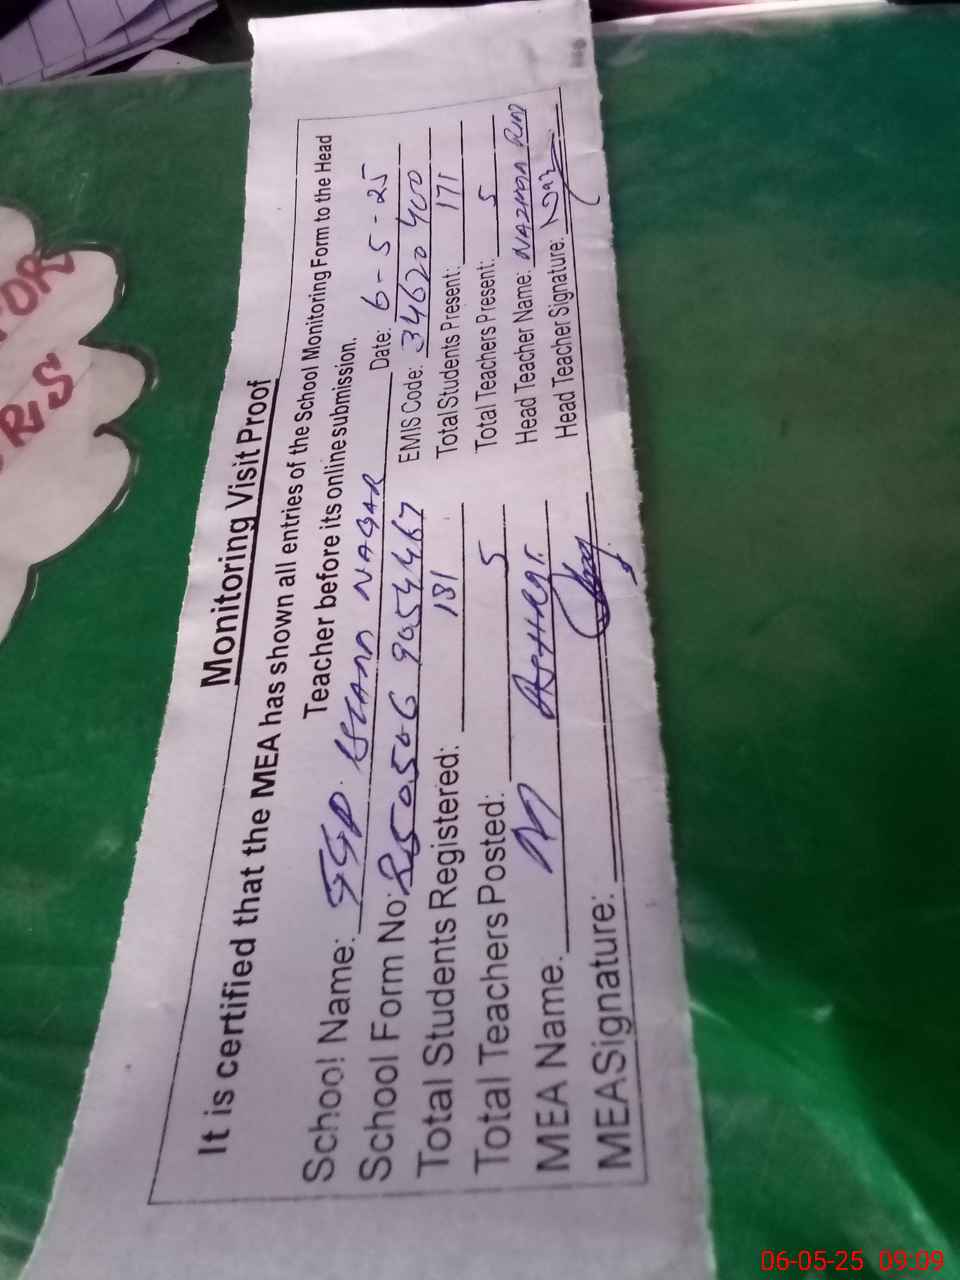 Monitoring Visit Proof
It is certified that the MEA has shown all entries of the School Monitoring Form to the Head
Teacher before its online submission.
School Name: GGP. ISLAM NAGAR Date: 6-5-25
School Form No: EMIS Code: 34620400
Total Students Registered: 181 Total Students Present: 171
Total Teachers Posted: 5 Total Teachers Present: 5
MEA Name. M Head Teacher Name: NAZMA
MEA Signature: Head Teacher Signature: Naz
FOR
RIS
06-05-25 09:09